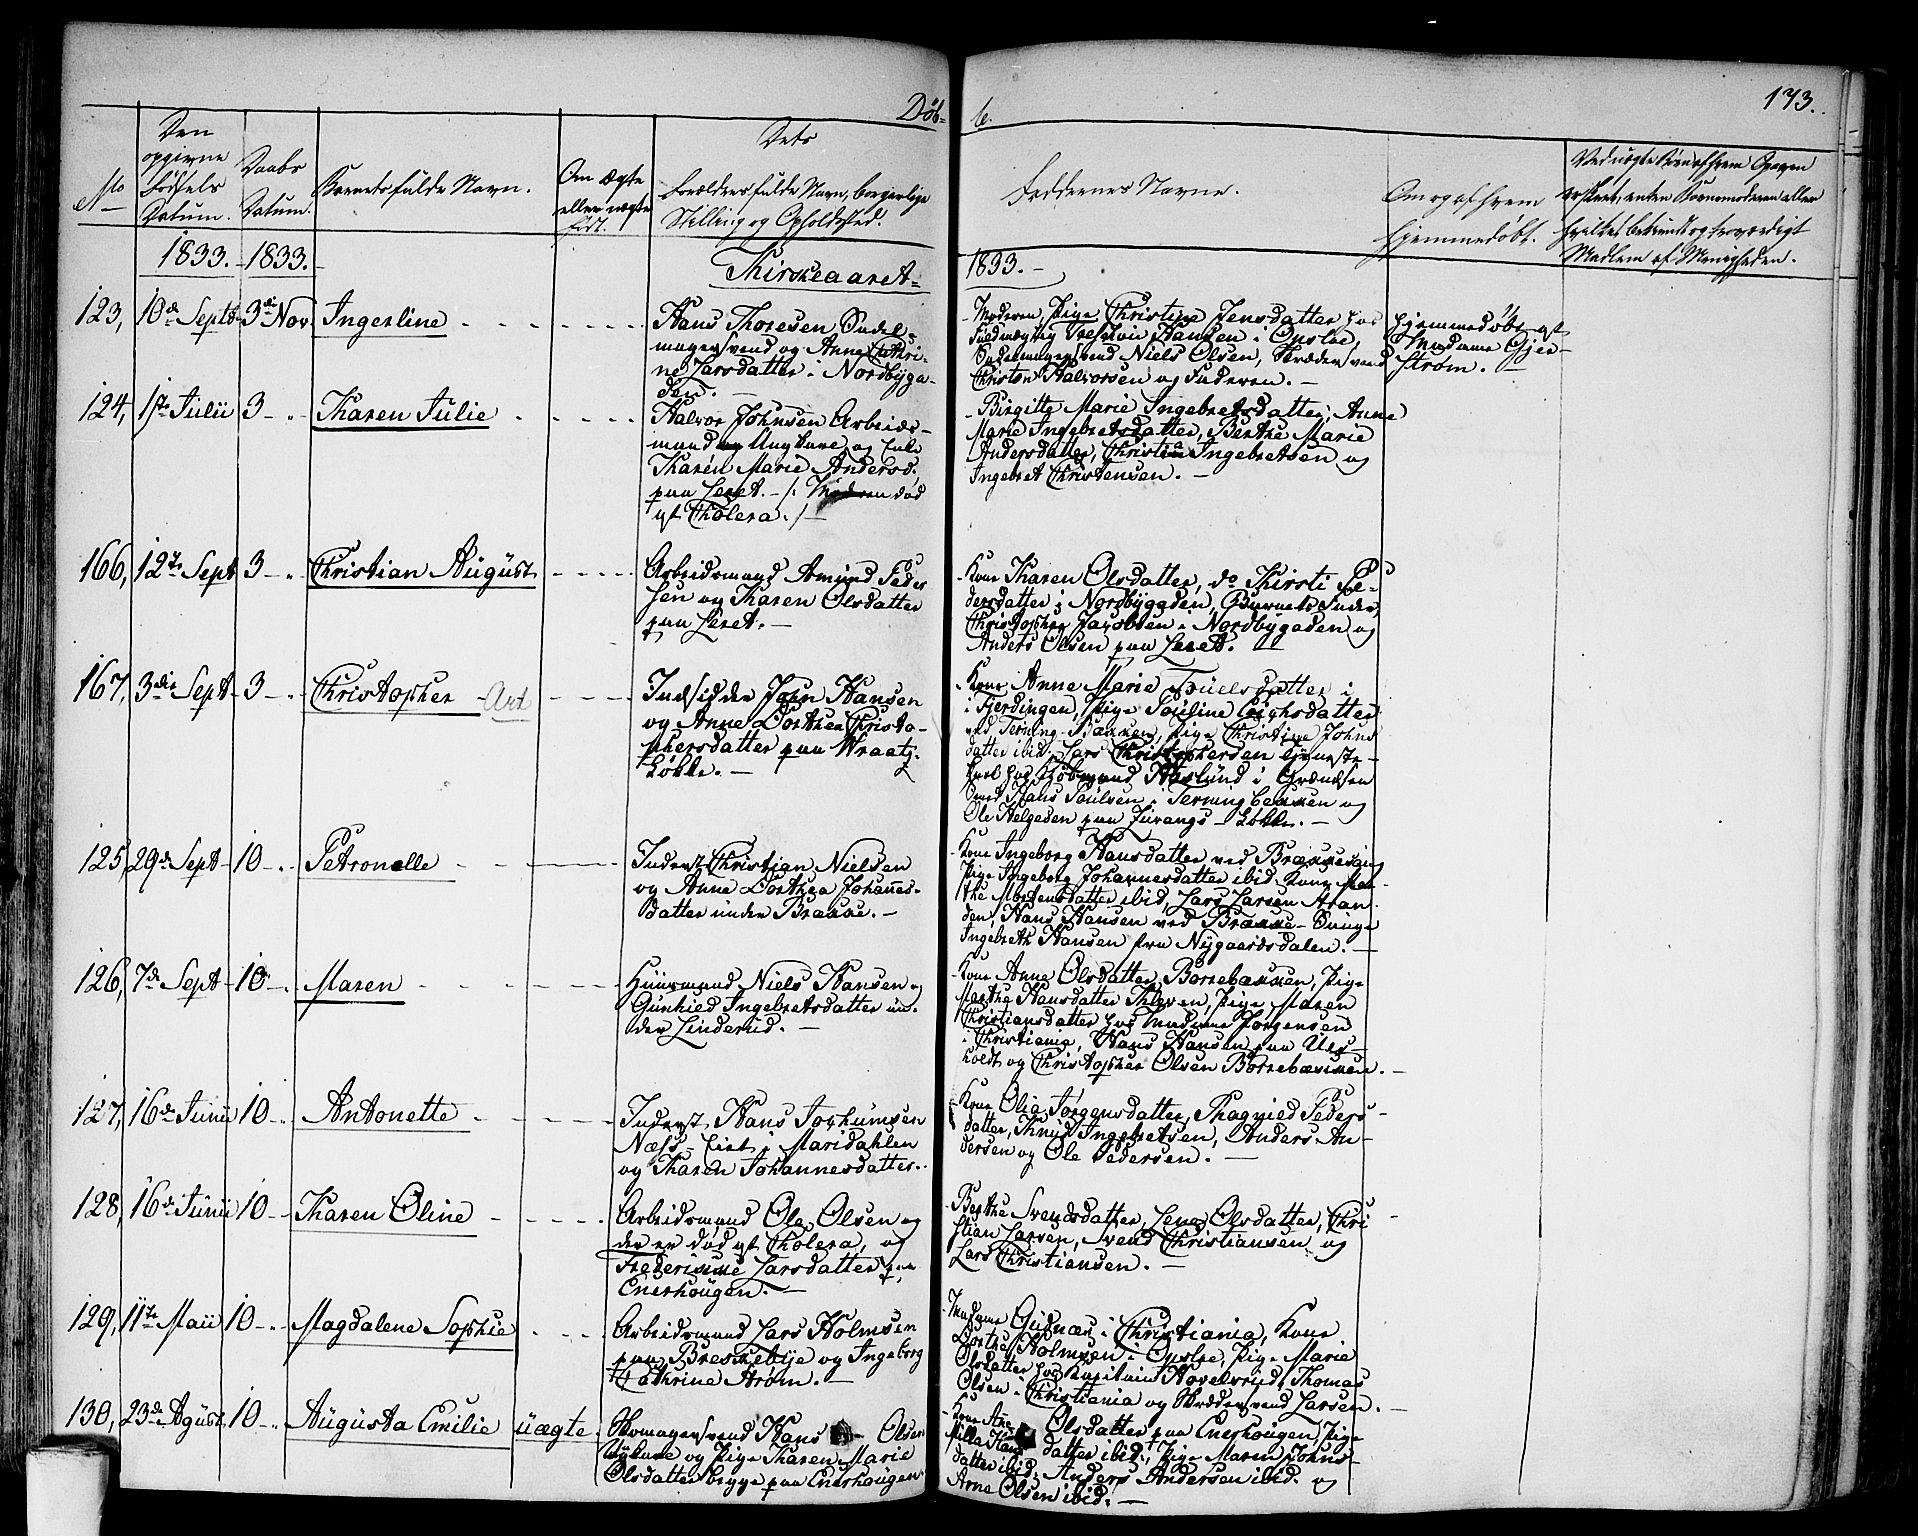 Döb-
te.
173.
No
Den opgivne Födsels Datum.
Daabs Datum.
Barnets fulde Navn.
Om ægte eller uægte födt.
Dets
Forældres fulde Navn, borgerlige
Stilling og Opholdssted.
Faddernes Navne.
Om og af hvem
hjemmedöbt.
Ved uægte Börn af hvem Opgaven
er skeet, enten Barnemoderen eller
hvilket bekiendt og troværdigt
Medlem af Menigheden.
1833. 1833.
Kirkeaaret
1833. -
123, 10de Septb 3die Nov. Ingerline
Hans Thoresen Sadel-
magersvend og Anne Cathri-
ne Larsdatter i Nordbyga-
den. -
Moderen, Pige Christine Jensdatter hos
Hansen i Opsloe,
Sadelmagersvend Niels Olsen, Skrædersvend
Christen Halvorsen og Faderen. -
Hjemmedöbt af
Madame Gjer-
ström. -
124, 1ste Julii 3 - Karen Julie
Halvor Johnsen Arbeids-
mand og Ungkarl og Enke
Karen Marie Andersd.
paa Leret. - /: Moderen död
af Cholera. :/ -
Birgitte Marie Ingebretsdatter, Anne
Marie Ingebretsdatter, Berthe Marie
Andersdatter, Christian Ingebretsen og
Ingebret Christensen. -
166, 12te Sept 3 - Christian August
Arbeidsmand Amund Peder
sen og Karen Olsdatter
paa Leret. -
Kone Karen Olsdatter, do Kirsti Pe-
dersdatter i Nordbygaden, Barnets Fader,
Christopher Jacobsen i Nordbygaden og
Anders Olsen paa Leret. -
167, 3die Sept 3 - Christopher Art
Indsidder John Hansen
og Anne Dorthea Christo-
phersdatter paa Wraatz-
Lökke. -
Kone Anne Marie Truelsdatter i
i Fjerdingen, Pige Pauline Erichsdatter
ved Terning-Bakken, Pige Christine Johns
datter ibid. Lars Christophersen tjeneste-
karl hos Kjöbmand Haslund i Grændsen
Hans Poulsen i Terningbakken og
Ole Helgesen paa Lökke. -
125, 29de Sept 10 - Petronelle
Inderst Christian Nielsen
og Anne Dorthea Johanes-
datter under Brække. -
Kone Ingeborg Hansdatter ved Brække
Pige Ingeborg Johannesdatter ibid. Kone Mar-
the Mortensdatter ibid, Lars Larsen Aran-
den, Hans Hansen ved Brække
Ingebreth Hansen fra Nygaardsdalen. -
126, 7de Sept 10 - Maren
Huusmand Niels Hansen og
Gunhild Ingebretsdatter un-
der Linderud. -
Kone Anne Olsdatter Borrebakken, Pige
Marthe Hansdatter Kleven, Pige Maren
Christiansdatter hos Madame Jörgensen
i Christiania, Hans Hansen paa
holdt og Christopher Olsen Borrebakken. -
127, 16de Junii 10 - Antonette
Inderst Hans Jochumsen
Næss-Eiet i Maridahlen
og Karen Johannesdatter. -
Kone Olia Jörgensdatter, Peders-
datter, Knud Ingebretsen, Anders An-
dersen og Ole Pedersen. -
128, 16de Junii 10 - Karen Oline
Arbeidsmand Ole Olsen og
der er död af Cholera, og
Frederikke Larsdatter paa
Enerhougen. -
Berthe Svendsdatter, Lena Olsdatter, Chri
stian Larsen, Svend Christiansen og
Lars Christiansen. -
129, 11te Maii 10 - Magdalene Sophie
Arbeidsmand Lars Holmsen
paa Breskebye og Ingeborg
Cathrine Aröm. -
Madame Gudnæs i Christiania, Kone
Dorthe Holmsen i Opsloe, Pige Marie
Olsdatter hos Kapitain Hovelsrud, Thomas
Olsen i Christiania og Skræddersvend Larsen. -
130, 23de August 10 - Augusta Emilie uægte
Skomagersvend Hans Olsen
Ungkarl og Pige Karen Marie
Olsdatter begge paa Enerhougen.
Kone Ane Olsdatter paa Enerhougen, Pige
Milla datter ibid, Pige Maren Johns-
datter ibid. Anders Andersen ibid. og
Arne Olsen ibid. -